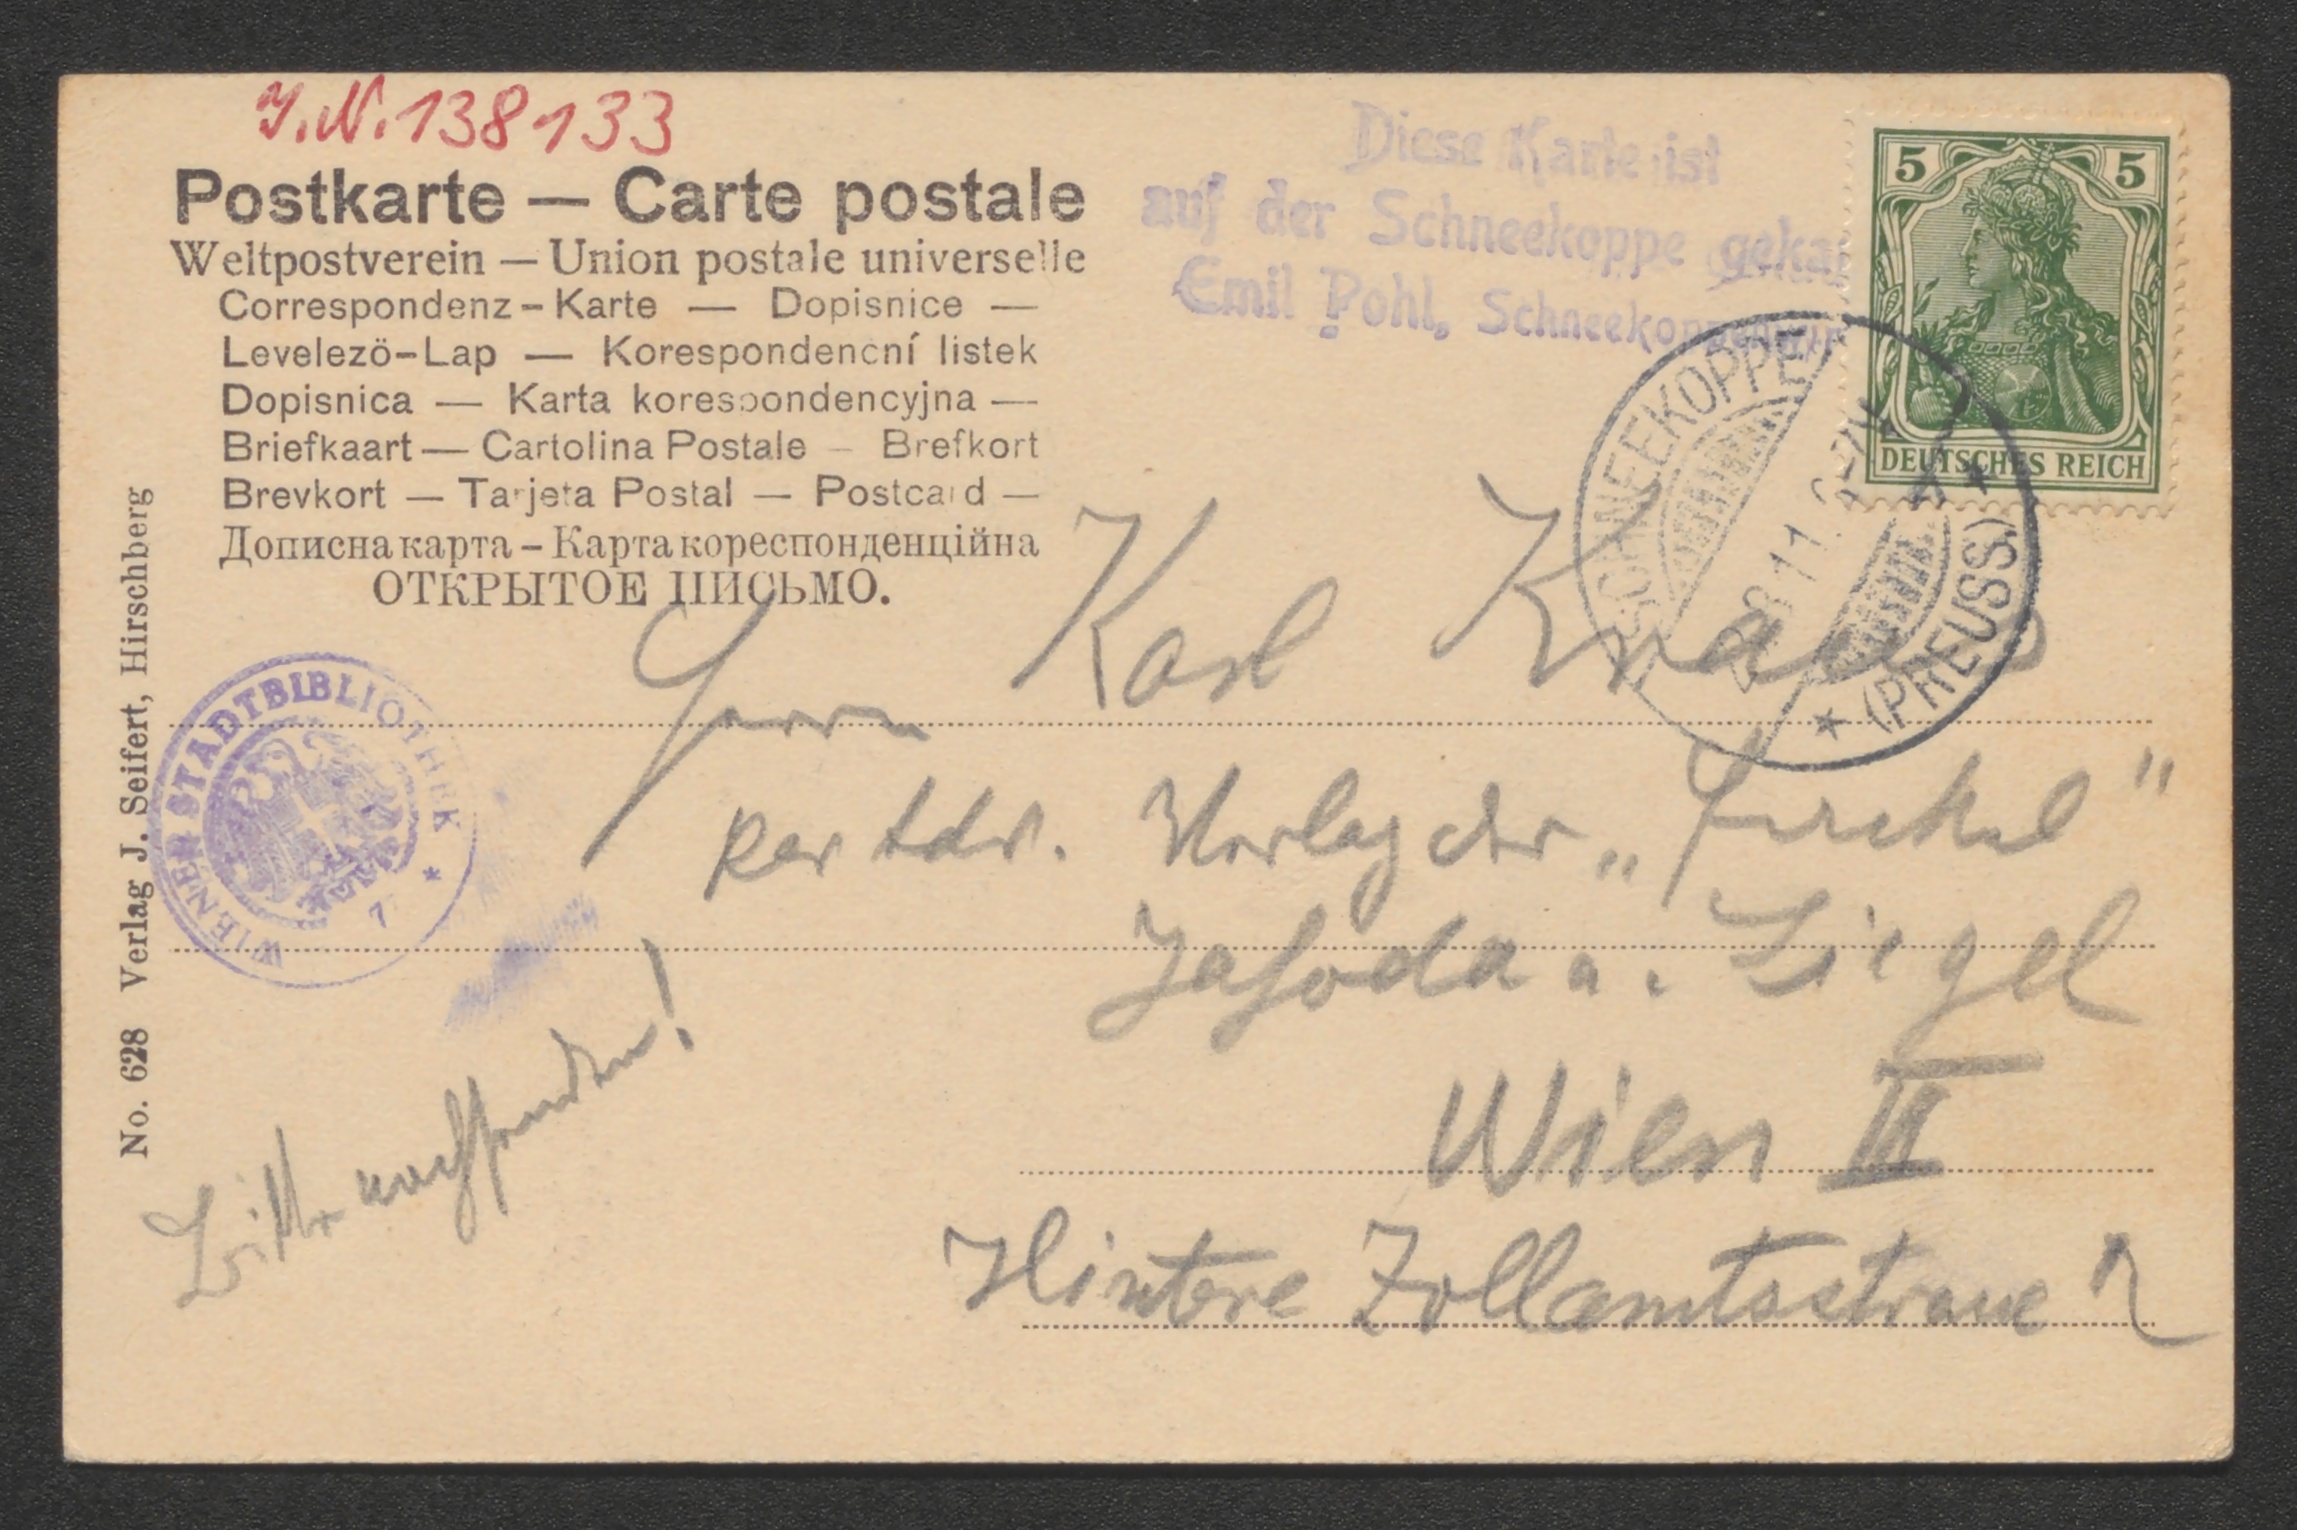 J.N. 138133
Postkarte — Carte postale
Weltpostverein — Union postale universelle
Correspondenz-Karte — Dopisnice —
Levelezö-Lap — Korespondencní listek
Dopisnica — Karta korespondencyjna —
Briefkaart — Cartolina Postale — Brefkort
Brevkort — Tarjeta Postal — Postcard —
Дописна карта – Карта кореспонденційна
ОТКРЫТОЕ ПИСЬМО.
Diese Karte ist
auf der Schneekoppe gekau
Emil Pohl, Schneekoppenwir
5 5
DEUTSCHES REICH
SCHNEEKOPPE
11
(PREUSS)
No. 628 Verlag J. Seifert, Hirschberg
WIENER STADTBIBLIOTHEK
Herrn Karl Kraus
per Adr. Verlag der „Fackel"
Jahoda u. Siegel
Wien III
Hintere Zollamtsstrasse
Bitte nachsenden!